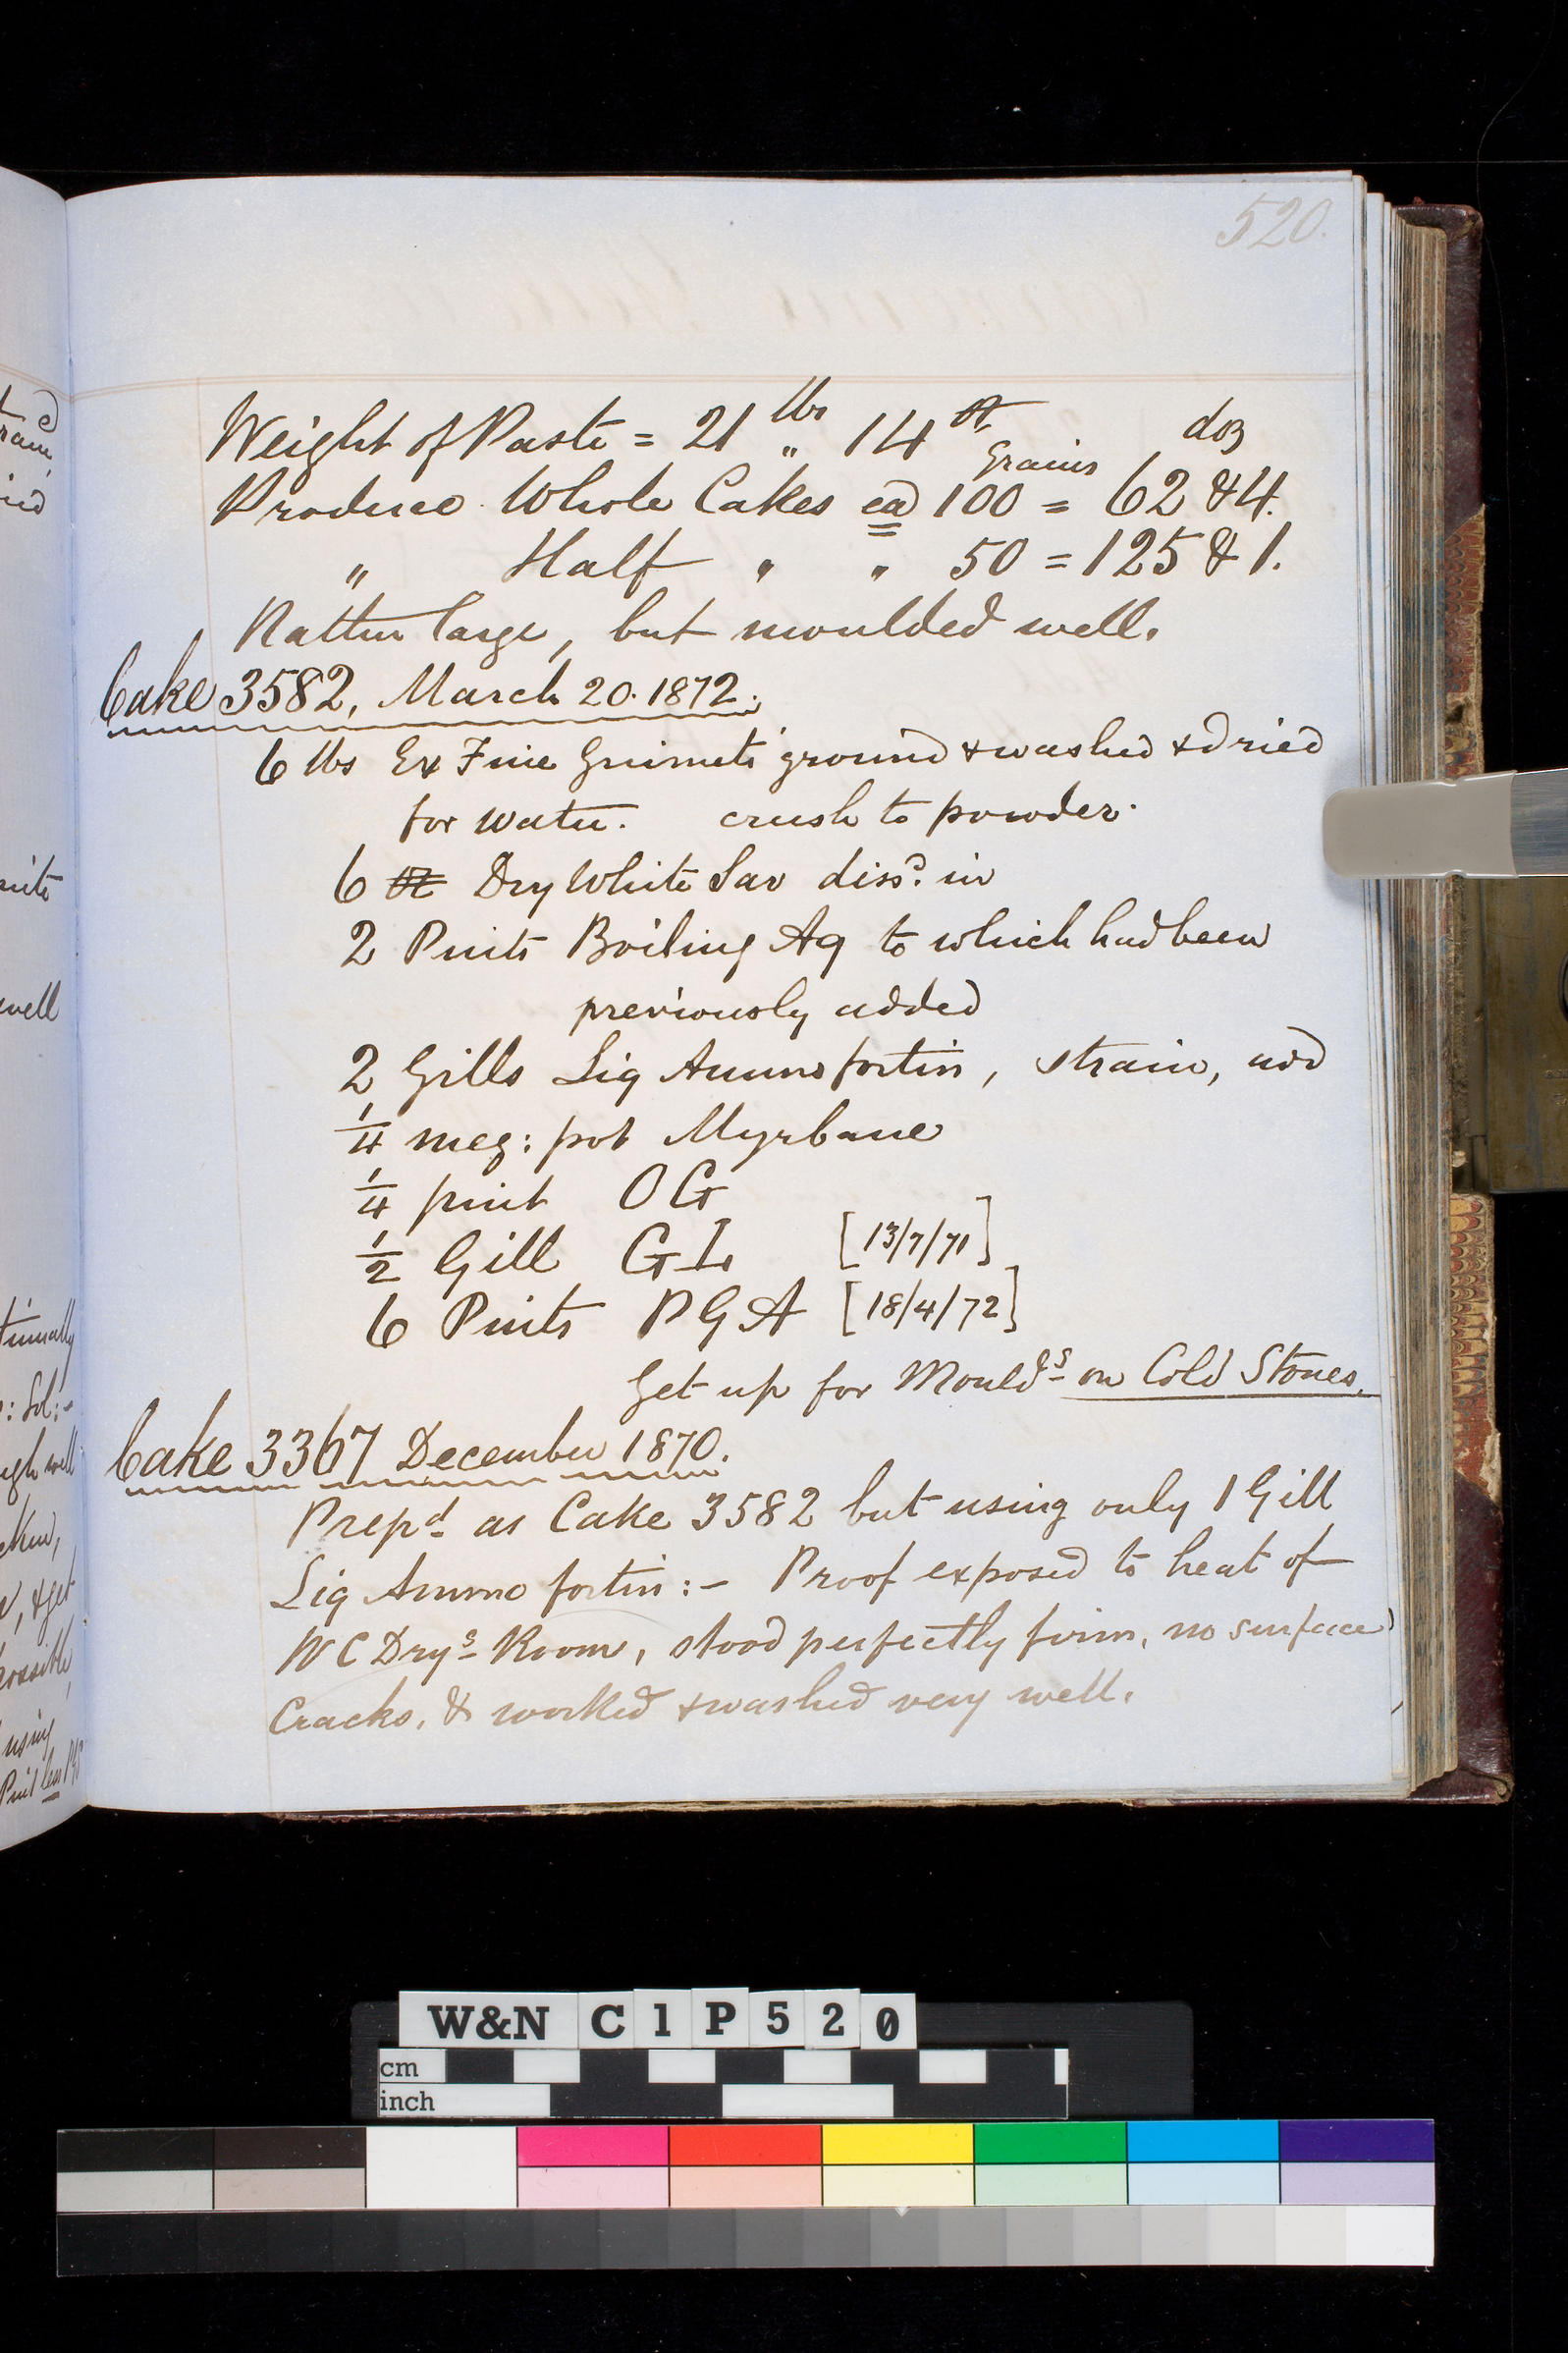 520.
Weight of Paste = 21 lbs „ 14 oz
Grains doz
Produce Whole Cakes ea 100 = 62 & 4.
„ Half „ „ 50 = 125 & 1.
Rather large, but moulded well.
Cake 3582, March 20. 1872.
6 lbs Ex Fine Guimets ground & washed & dried
for water. crush to powder.
6 oz Dry White Lac dissd. in
2 Pints Boiling Aq to which had been
previously added
2 Gills Liq Ammo fortin, strain, add
1/4 meg: pot Myrbane
1/4 pint OG
1/2 Gill GL [13/7/71]
6 Pints PGA [18/4/72]
Get up for Mouldg on Cold Stones.
Cake 3367 December 1870.
Prepd as Cake 3582 but using only 1 Gill
Liq Ammo fortin :- Proof exposed to heat of
WC Dryg Room, stood perfectly firm, no surface
Cracks, & worked & washed very well.
well
using
W&N C1P520
cm
inch